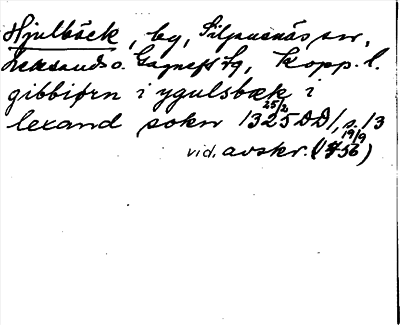 Hjulbäck, by, Siljansnäs sn,
Leksands o. Gagnefs tg, Kopp. l.
gibbiørn i ygulsbæk i
lexand sokn 1325 25/2 DD 1, s. 13
vid. avskr. (19/9 1356)